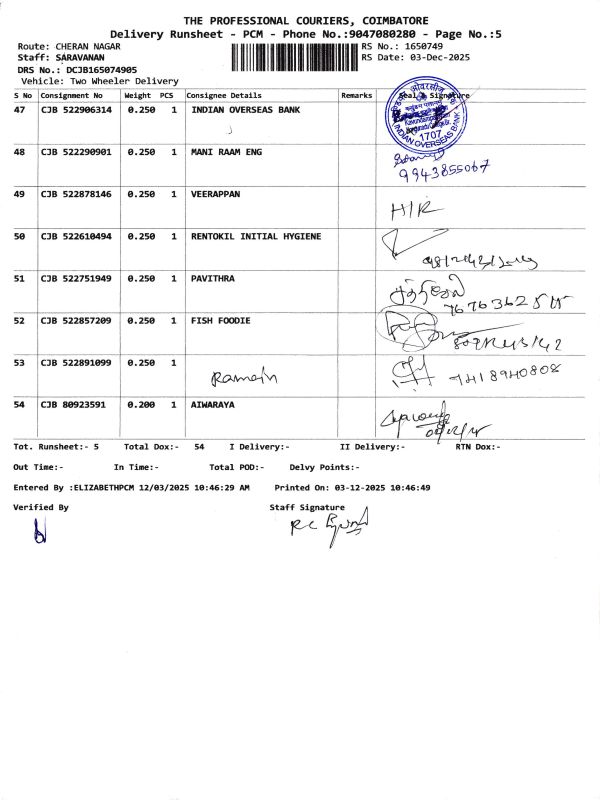 THE PROFESSIONAL COURIERS, COIMBATORE
Delivery Runsheet - PCM - Phone No.:9047080280 - Page No.:5
Route: CHERAN NAGAR RS No.: 1650749
Staff: SARAVANAN RS Date: 03-Dec-2025
DRS No.: DCJB165074905
Vehicle: Two Wheeler Delivery
S No Consignment No Weight PCS Consignee Details Remarks Seal & Signature
47 CJB 522906314 0.250 1 INDIAN OVERSEAS BANK
1707
INDIAN OVERSEAS BANK
48 CJB 522290901 0.250 1 MANI RAAM ENG
9943855067
49 CJB 522878146 0.250 1 VEERAPPAN H/R
50 CJB 522610494 0.250 1 RENTOKIL INITIAL HYGIENE
51 CJB 522751949 0.250 1 PAVITHRA
52 CJB 522857209 0.250 1 FISH FOODIE
53 CJB 522891099 0.250 1
7418940808
54 CJB 80923591 0.200 1 AIWARAYA
Tot. Runsheet:- 5 Total Dox:- 54 I Delivery:- II Delivery:- RTN Dox:-
Out Time:- In Time:- Total POD:- Delvy Points:-
Entered By :ELIZABETHPCM 12/03/2025 10:46:29 AM Printed On: 03-12-2025 10:46:49
Verified By Staff Signature